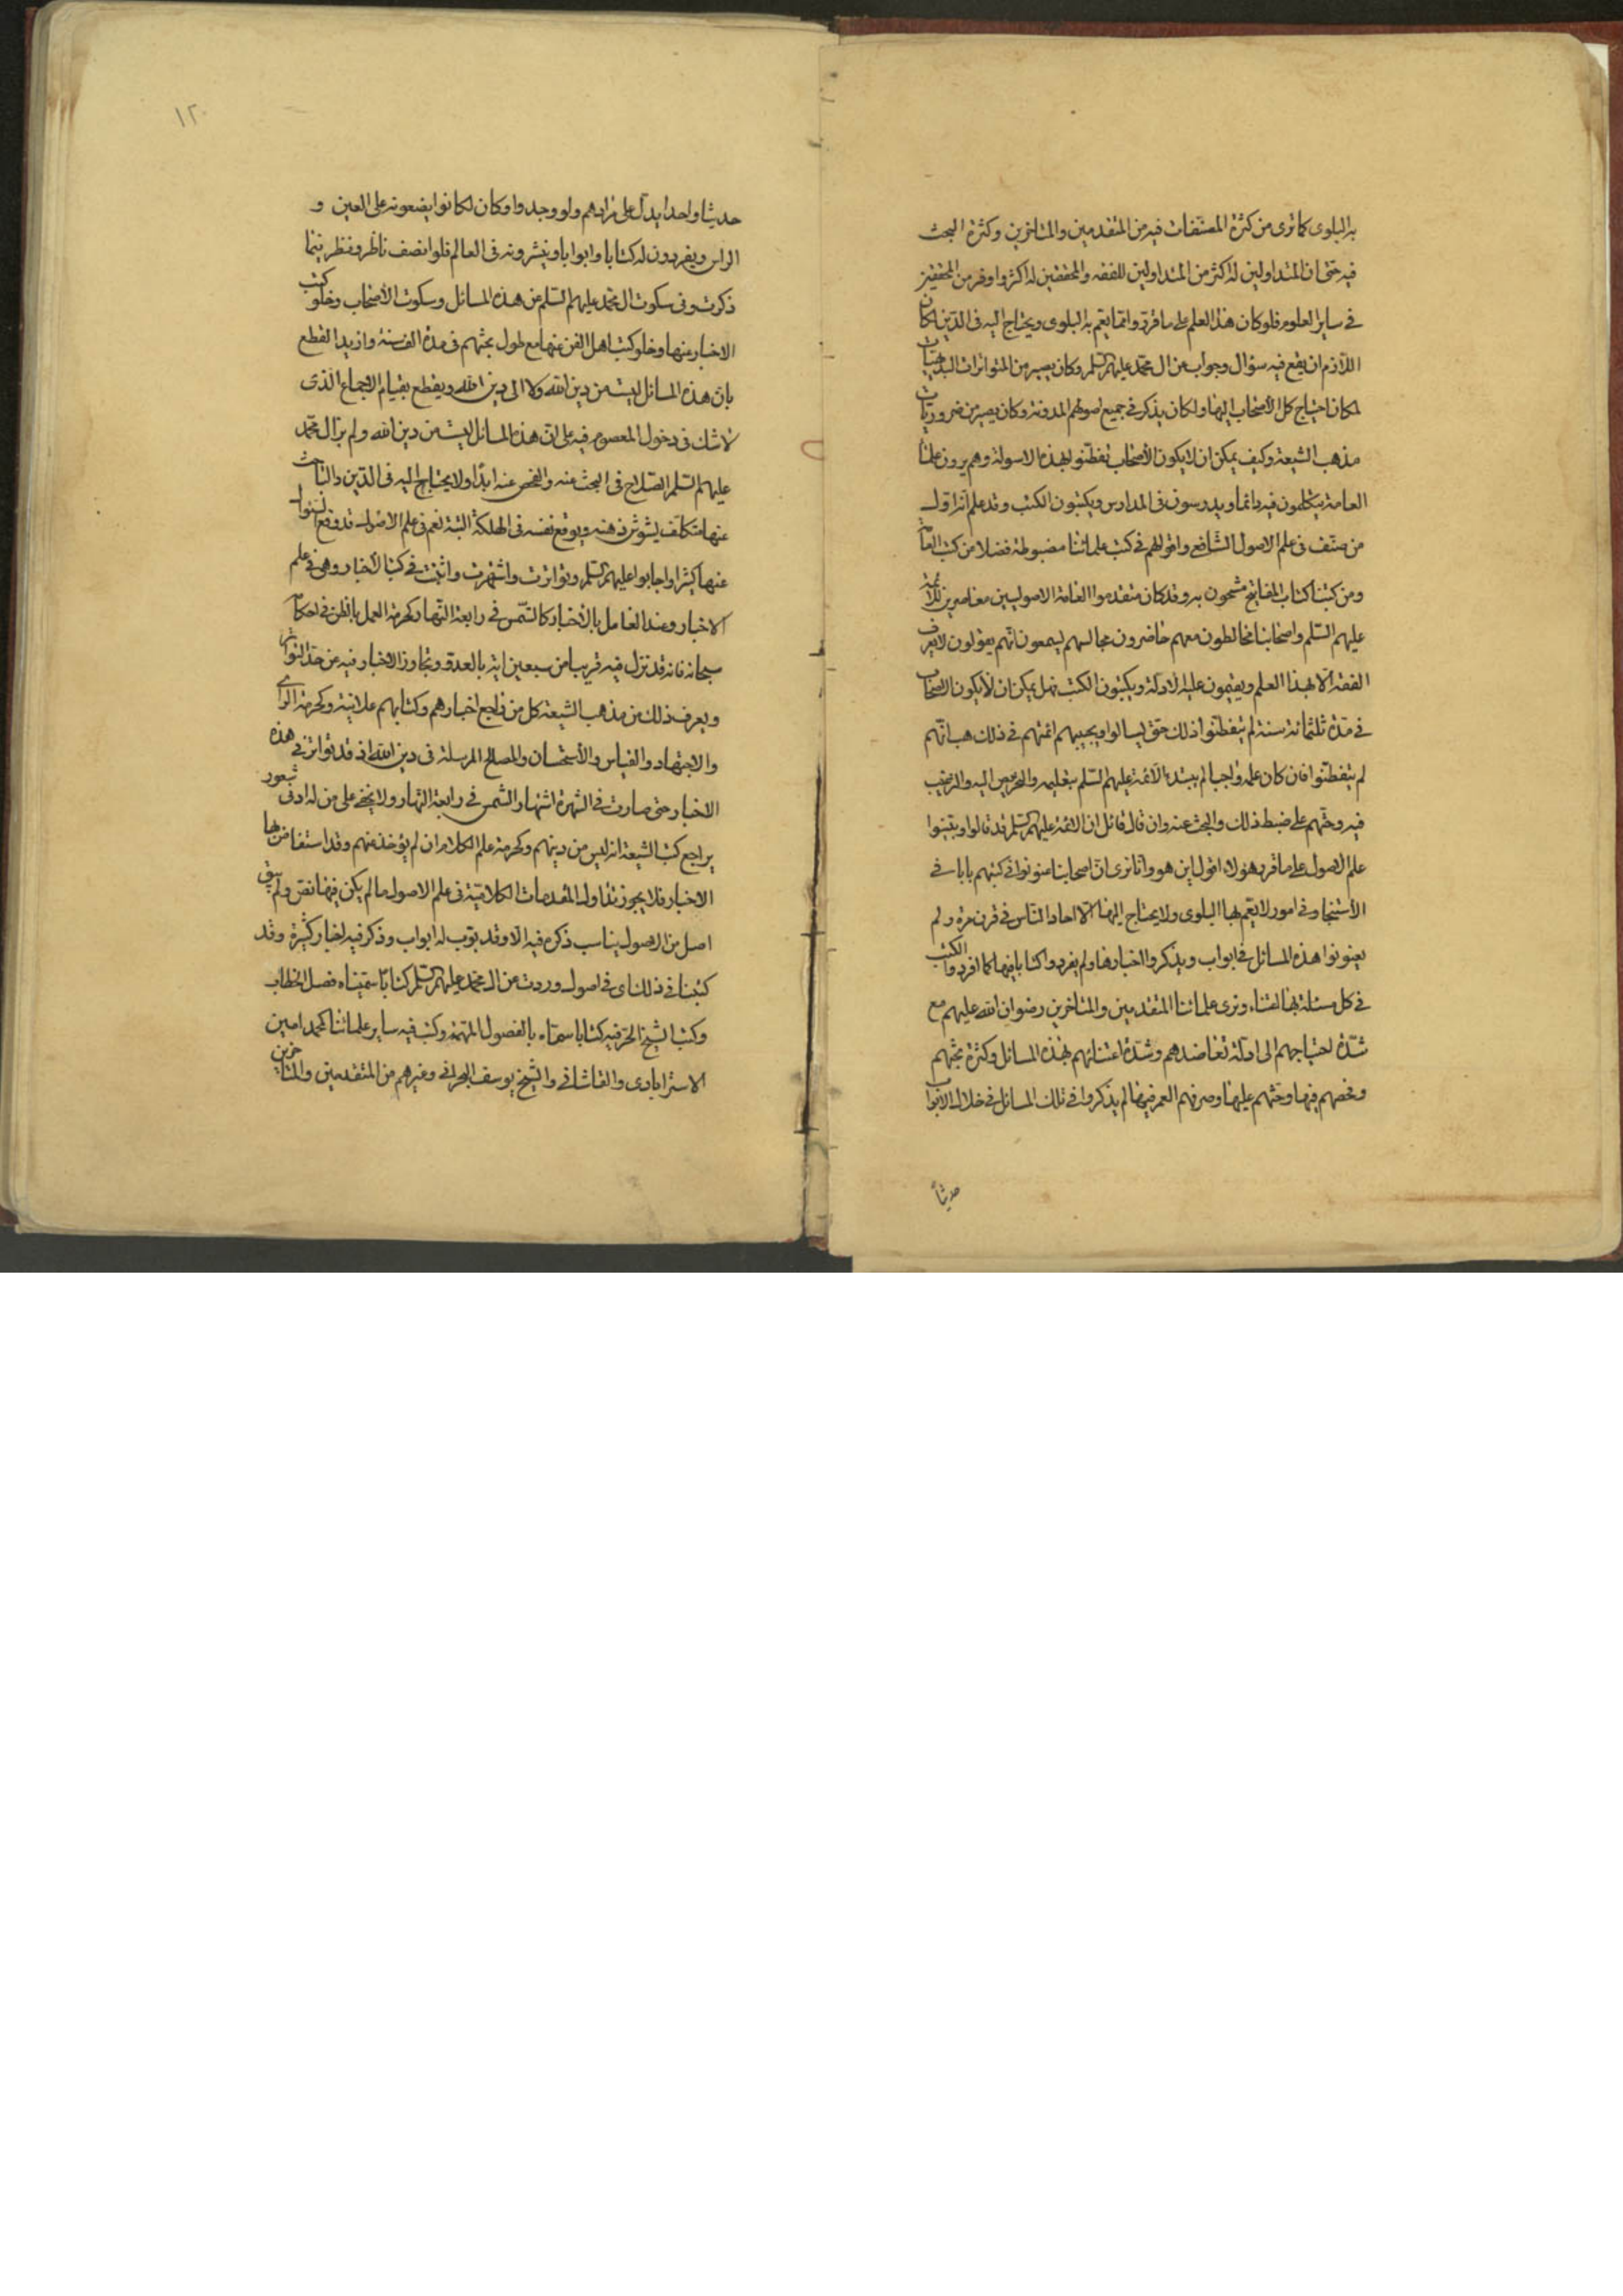 به البلوى كما ترى من كثرة المصنفات فيه من المتقدمين والمتاخرين وكثرة البحث
فيه حتى ان المتداولين له اكثر من المتداولين للفقه والمحققين له اكثر واوفر من المحققين
في ساير العلوم فلو كان هذا العلم على ما قرر وانما يعم به البلوى ويحتاج اليه في الدين لكان
اللازم ان يقع فيه سؤال وجواب عن ال محمد عليهم السلم وكان يصير من المتواترات البديهيات
لمكان احتياج كل الأصحاب اليها ولكان يذكر في جميع اصولهم المدونة وكان يصير من ضروريات
مذهب الشيعة وكيف يمكن ان لا يكون الأصحاب تفطنوا لهذه الاسولة وهم يرون علماء
العامة يتكلمون فيه دائما ويدرسون في المدارس ويكتبون الكتب وقد علم ان اول
من صنف في علم الاصول الشافعي واقوالهم في كتب علمائنا مضبوطة فضلا من كتب العامة
ومن كتبنا كتاب المفاتيح مشحون به وقد كان متقدموا العامة الاصوليين معاصرين للائمة
عليهم السلم واصحابنا مخالطون معهم حاضرون مجالسهم يسمعون انهم يقولون لا يعرف
الفقه الا بهذا العلم ويقيمون عليه الادلة ويكتبون الكتب فهل يمكن ان لا يكون الاصحاب
في مدة ثلثمائة سنة لم يتفطنوا ذلك حتى يسالوا ويجيبهم ائمتهم في ذلك هب انهم
لم يتفطنوا فان كان علمه واجبا لم يبتدء الائمة عليهم السلم بتعليمه والتحريص اليه والترغيب
فيه وحثهم على ضبط ذلك والبحث عنه وان قال قائل ان الائمة عليهم السلم قد قالوا وبينوا
علم الاصول على ما قرر هؤلاء اقول اين هو وانا نرى ان اصحابنا عنونوا في كتبهم بابا في
الأستنجاء وفي امور لا يعم بها البلوى ولا يحتاج اليها الا احاد الناس في قرن مرة ولم
يعنونوا هذه المسائل في ابواب ويذكروا اخبارها ولم يفردوا كتابا فيها كما افردوا الكتب
في كل مسئلة بها اعتناء ونرى علمائنا المتقدمين والمتاخرين رضوان الله عليهم مع
شدة احتياجهم الى ادلة تعاضدهم وشدة اعتنائهم بهذه المسائل وكثرة بحثهم
وفحصهم فيها وحثهم عليها وصرفهم العمر فيها لم يذكروا في تلك المسائل في خلال الابواب
حديثاً
١٢٠
حديثا واحدا يدل على مرادهم ولو وجدوا وكان لكانوا يضعونه على العين و
الراس ويفردون له كتابا وابوابا وينشرونه في العالم فلو انصف ناظر ونظر فيما
ذكرت وفي سكوت ال محمد عليهم السلم عن هذه المسائل وسكوت الأصحاب وخلو كتب
الاخبار عنها وخلو كتب اهل الفن عنها مع طول بحثهم في مدة الف سنة وازيد القطع
بان هذه المسائل ليست من دين الله ولا الى دين الله ويقطع بقيام الاجماع الذى
لا شك في دخول المعصوم فيه على ان هذه المسائل ليست من دين الله ولم ير ال محمد
عليهم السلم الصلاح في البحث عنه والفحص عنه ابدا ولا يحتاج اليه في الدين والباحث
عنها متكلف يشوش ذهنه ويوقع نفسه في الهلكة البتة نعم في علم الاصول قد وقع
عنها كثيرا واجابوا عليهم السلم وتواترت واشتهرت واثبتت في كتب الأخبار وهي في علم
الاخبار وعند العامل بالأخبار كالشمس في رابعة النهار كحرمة العمل بالظن في احكام
سبحانه فانه قد نزل فيه قريبا من سبعين اية بالعدد وتجاوز الاخبار فيه عن حد التواتر
ويعرف ذلك من مذهب الشيعة كل من راجع اخبارهم وكتابهم علانية وكحرمة الراى
والاجتهاد والقياس والأستحسان والمصالح المرسلة في دين الله اذ قد تواتر في هذه
الاخبار حتى صارت في الشهرة اشتهار الشمس في رابعة النهار ولا يخفى على من له ادنى شعور
يراجع كتب الشيعة انه ليس من دينهم وكحرمة علم الكلام ان لم يؤخذ عنهم وقد استفاض بها
الاخبار فلا يجوز تناول المقدمات الكلامية في علم الاصول ما لم يكن فيها نص ولم يبق
اصل من الاصول يناسب ذكره فيه الا وقد بوب له ابواب وذكر فيه اخبار كثيرة وقد
كتبنا في ذلك اى في اصول وردت عن ال محمد عليهم السلم كتابا سميناه فصل الخطاب
وكتب الشيخ الحر فيه كتابا سماه بالفصول المهمة وكتب فيه ساير علمائنا كمحمد امين
الاسترابادى والقاشاني والشيخ يوسف البحراني وغيرهم من المتقدمين والمتاخرين